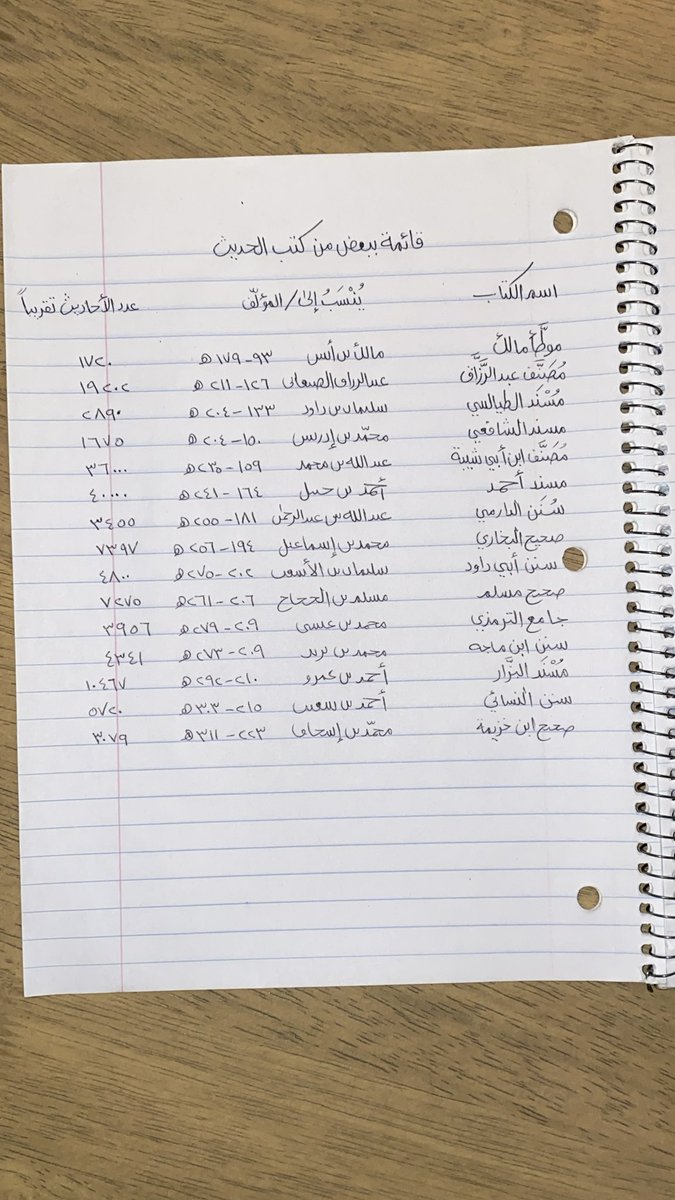 قائمة ببعض من كتب الحديث
اسم الكتاب يُنْسَبُ إلى/المؤلّف عدد الأحاديث تقريباً
موطَّأ مالك مالك بن أنس ٩٣-١٧٩ هـ ١٧٢٠
مُصَنَّف عبد الرَّزَّاق عبد الرزاق الصنعاني ١٢٦-٢١١ هـ ١٩٢٠٢
مُسْنَد الطيالسي سليمان بن داود ١٣٣-٢٠٤ هـ ٢٨٩٠
مسند الشافعي محمّد بن إدريس ١٥٠-٢٠٤ هـ ١٦٧٥
مُصَنَّف ابن أبي شيبة عبد الله بن محمد ١٥٩-٢٣٥ هـ ٣٦٠٠٠
مسند أحمد أحمد بن حنبل ١٦٤-٢٤١ هـ ٤٠٠٠٠
سُنَن الدارمي عبد الله بن عبد الرحمٰن ١٨١-٢٥٥ هـ ٣٤٥٥
صحيح البخاري محمد بن إسماعيل ١٩٤-٢٥٦ هـ ٧٣٩٧
سنن أبي داود سليمان بن الأشعث ٢٠٢-٢٧٥ هـ ٤٨٠٠
صحيح مسلم مسلم بن الحجاج ٢٠٦-٢٦١ هـ ٧٢٧٥
جامع الترمذي محمد بن عيسى ٢٠٩-٢٧٩ هـ ٣٩٥٦
سنن ابن ماجه محمد بن يزيد ٢٠٩-٢٧٣ هـ ٤٣٤١
مُسْنَد البزَّار أحمد بن عمرو ٢١٠-٢٩٢ هـ ١٠٤٦٧
سنن النسائي أحمد بن شعيب ٢١٥-٣٠٣ هـ ٥٧٢٠
صحيح ابن خزيمة محمّد بن إسحاق ٢٢٣-٣١١ هـ ٣٠٧٩